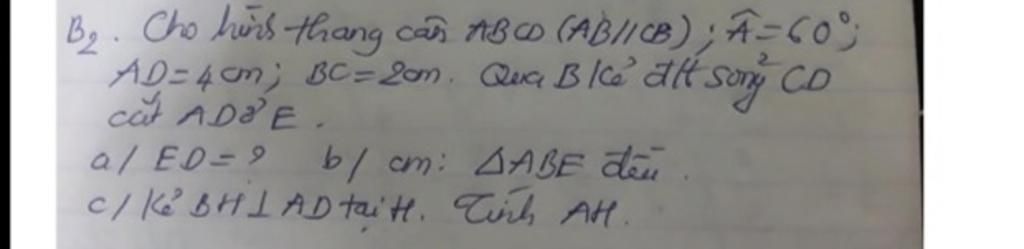 B2. Cho hình thang cân ABCD (AB//CB); Â=60°;
AD=4cm; BC=2cm. Qua B kẻ đt song² CD
cắt AD ở E.
a/ ED=? b/ cm: ΔABE đều.
c/ Kẻ BH⊥AD tại H. Tính AH.